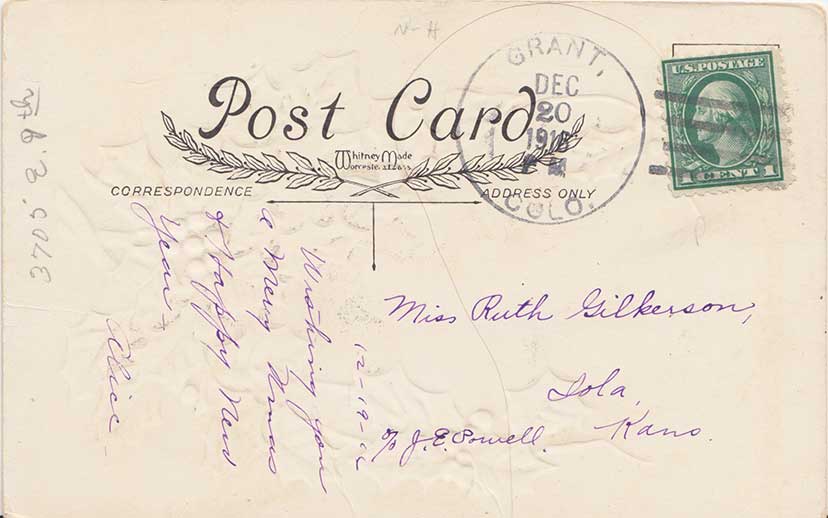 N-H
GRANT,
DEC
20
1916
COLO.
U.S. POSTAGE
1 CENT 1
Post Card
Whitney Made
Worcester, Mass
CORRESPONDENCE
ADDRESS ONLY
12-19-16
Wishing you
a Merry Xmas
& Happy New
Year -
Alice -
Miss Ruth Gilkerson,
Iola,
Kans.
c/o J. E. Powell.